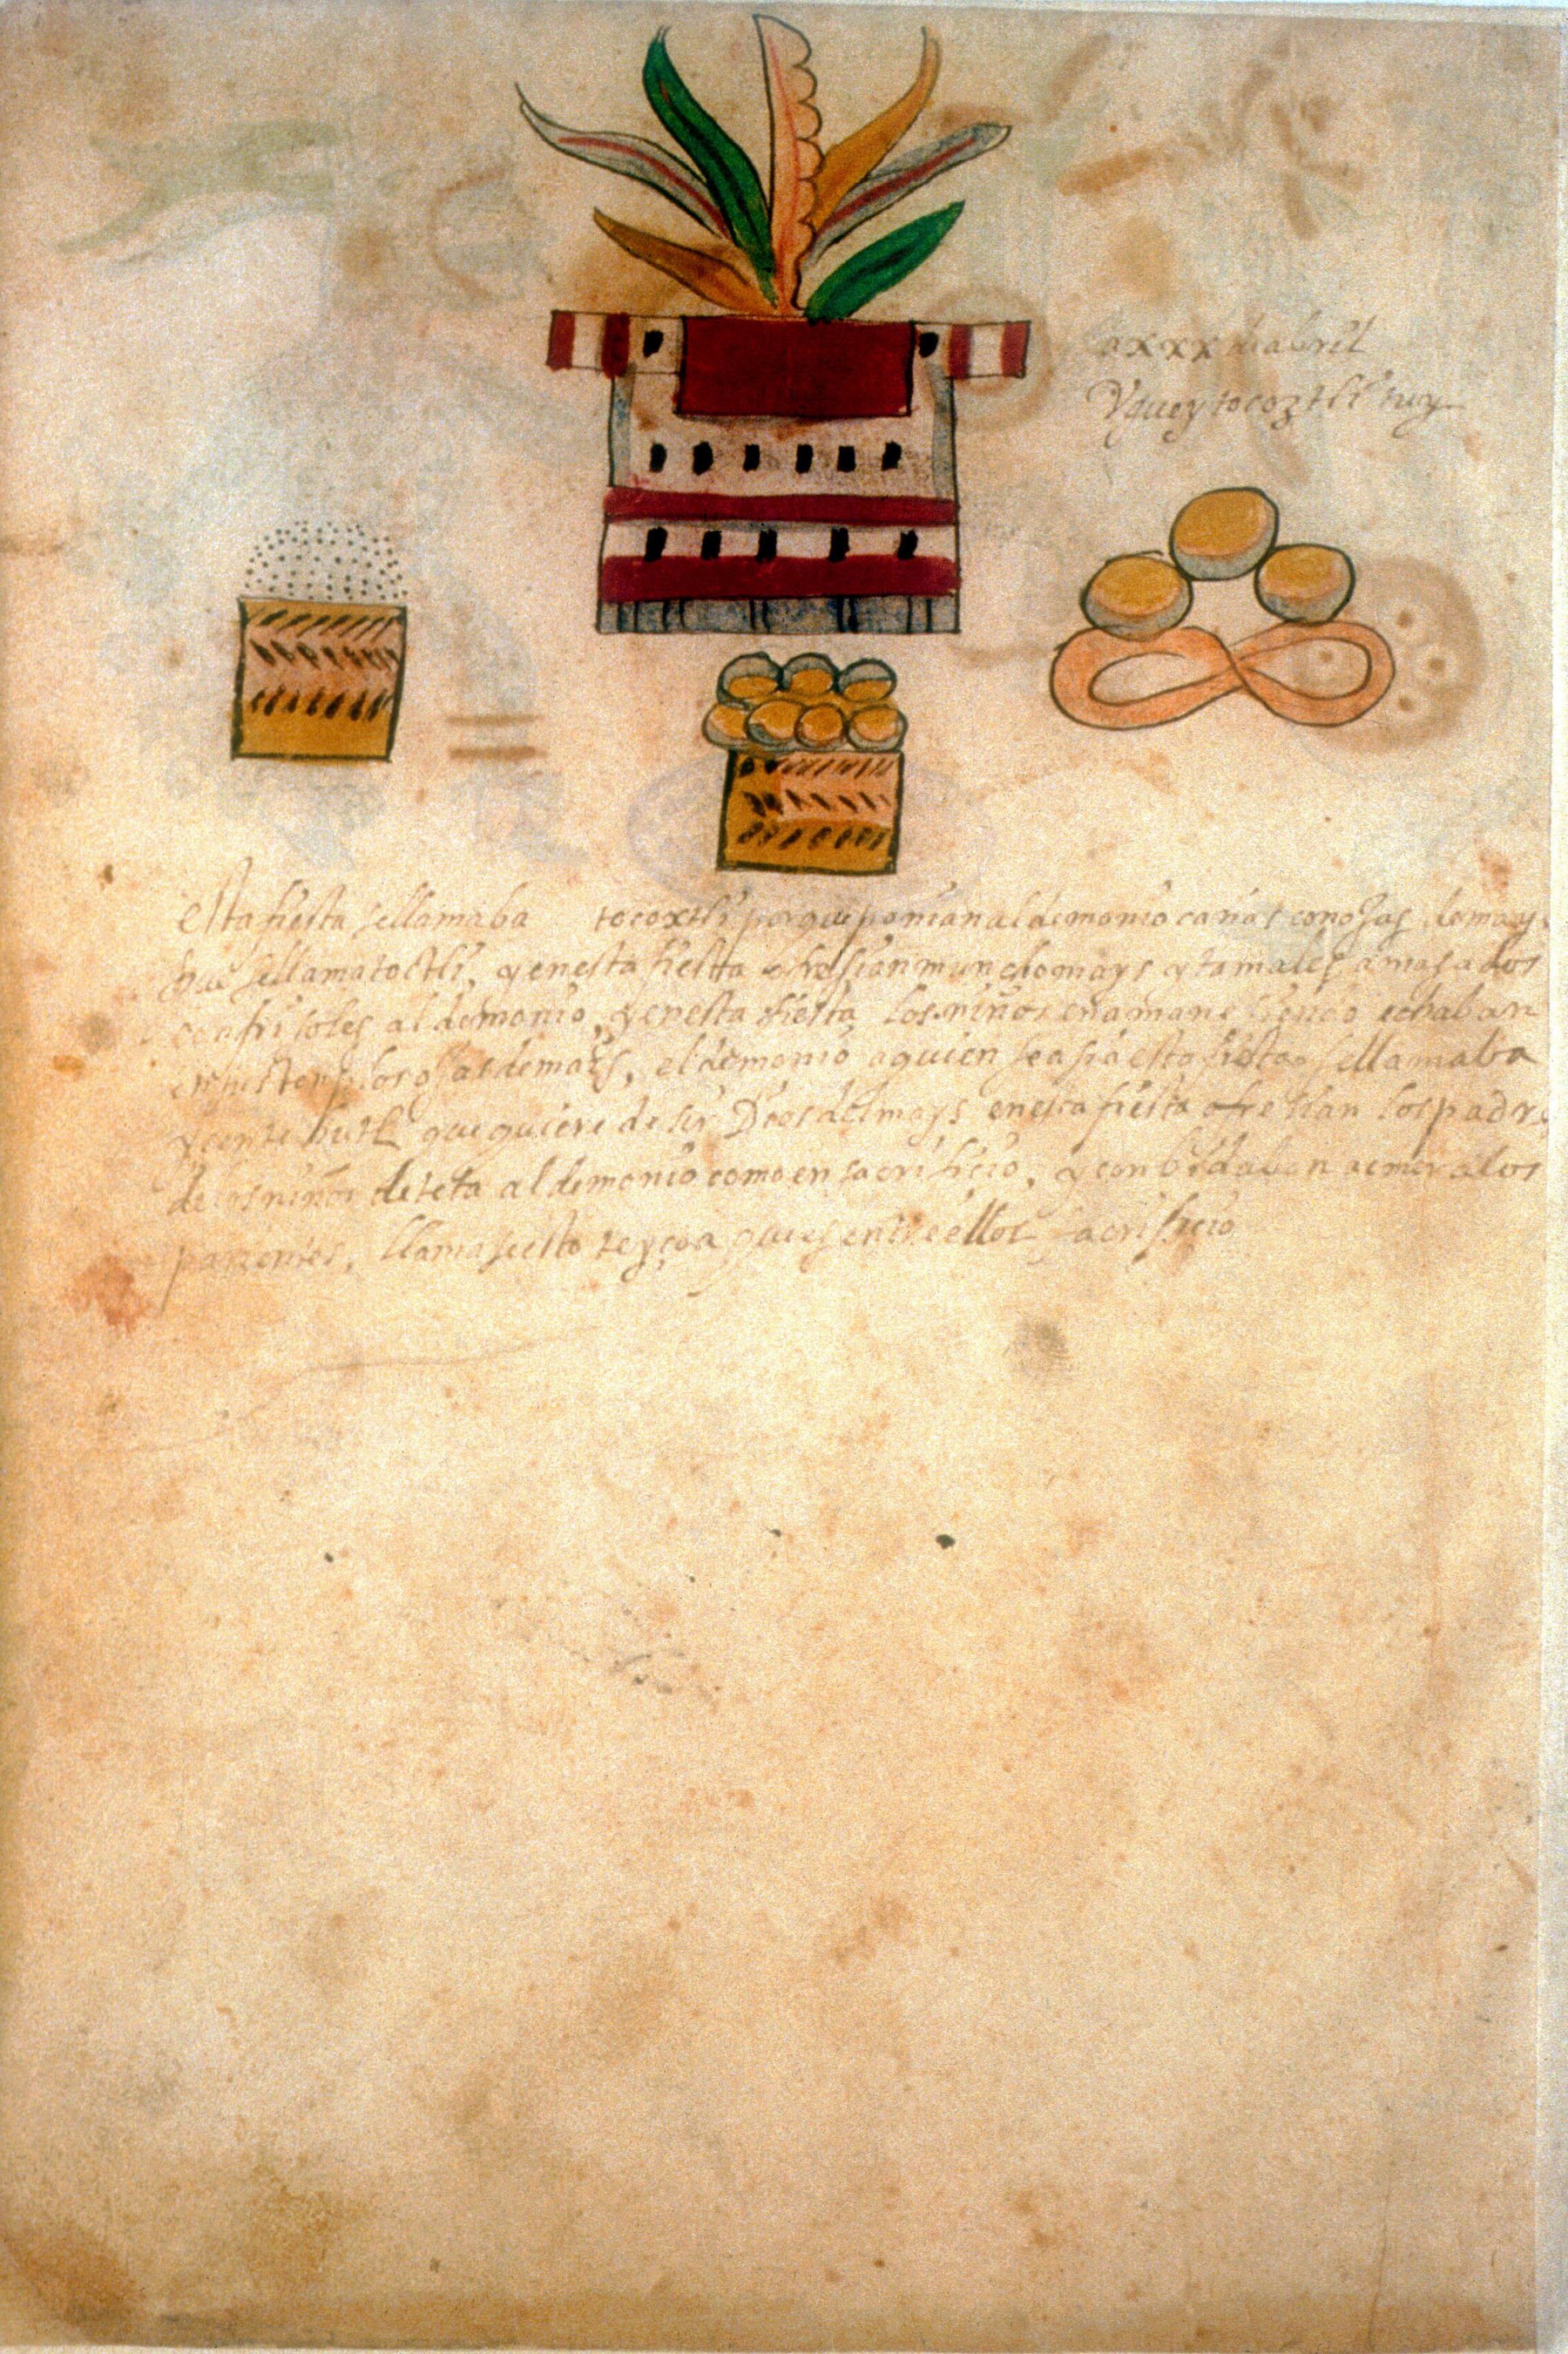 axxx de abril
Y gueytocoztli huy
esta fiesta se llamaba tocoxtli porque ponian al demonio cañas con ojas de mayz
que se llama toctli, y en esta fiesta ofresian muncho mays y tamales amasados
con frisoles al demonio, y en esta fiesta los niños en amane siendo echaban
en sus templos ojas de mais, el demonio a quien se asia esta fiesta se llamaba
que quiere desir Dios del mays en esta fiesta ofresian los padres
de los niños de teta al demonio como en sacrificio, y conbidaban a comer a los
parientes, llamase esto teyçoa que es entre ellos sacrificio